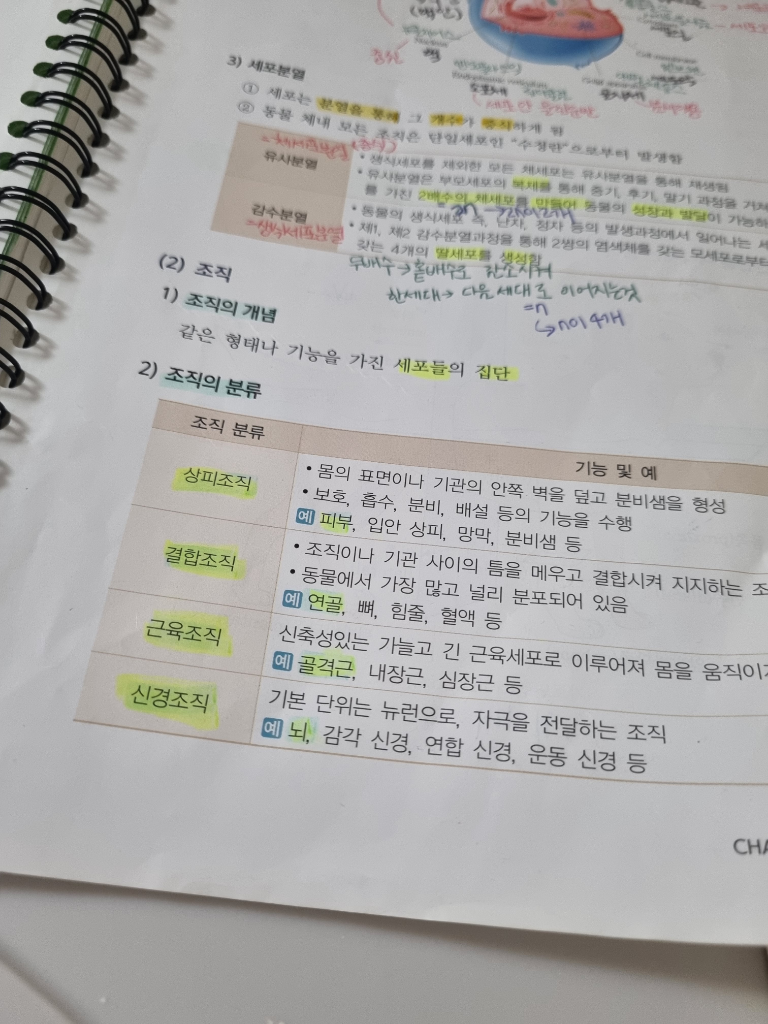 (백산)
핵
3) 세포분열
① 세포는 분열을 통해 그 개수가 증식하게 됨
② 동물 체내 모든 조직은 단일세포인 "수정란"으로부터 발생함
유사분열
• 생식세포를 제외한 모든 체세포는 유사분열을 통해 재생됨
• 유사분열은 부모세포의 복제를 통해 중기, 후기, 말기 과정을 거쳐
를 가진 2배수의 체세포를 만들어 동물의 성장과 발달이 가능하
감수분열
=생식세포분열
• 동물의 생식세포 즉, 난자, 정자 등의 발생과정에서 일어나는 세
• 제1, 제2 감수분열과정을 통해 2쌍의 염색체를 갖는 모세포로부터
갖는 4개의 딸세포를 생성함
두배수→홑배수로 감소시켜
한세대→다음세대로 이어지는것
=n
↳n이 4개
(2) 조직
1) 조직의 개념
같은 형태나 기능을 가진 세포들의 집단
2) 조직의 분류
조직 분류
기능 및 예
상피조직
• 몸의 표면이나 기관의 안쪽 벽을 덮고 분비샘을 형성
• 보호, 흡수, 분비, 배설 등의 기능을 수행
예 피부, 입안 상피, 망막, 분비샘 등
결합조직
• 조직이나 기관 사이의 틈을 메우고 결합시켜 지지하는 조
• 동물에서 가장 많고 널리 분포되어 있음
예 연골, 뼈, 힘줄, 혈액 등
근육조직
신축성있는 가늘고 긴 근육세포로 이루어져 몸을 움직이
예 골격근, 내장근, 심장근 등
신경조직
기본 단위는 뉴런으로, 자극을 전달하는 조직
예 뇌, 감각 신경, 연합 신경, 운동 신경 등
CHA